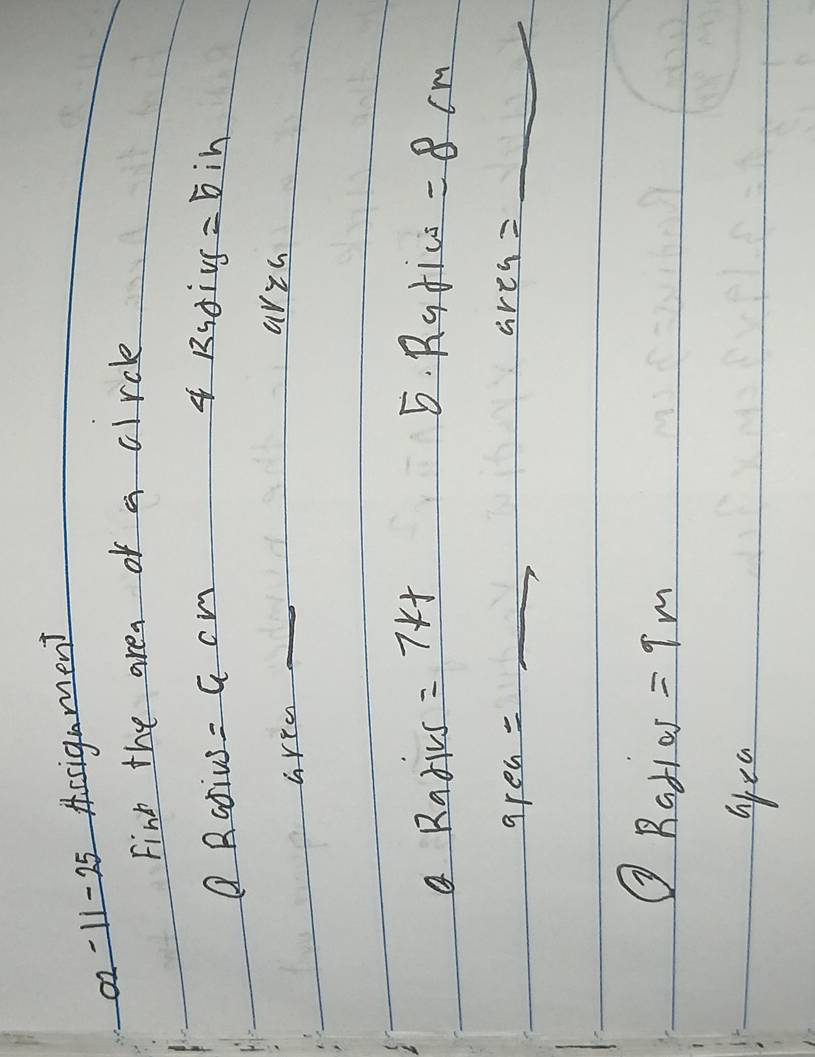 02-11-25 Assignment
Find the area of a circle
Radius = 4 cm 4 Radius = 5 in
area area
Radius = 7ft 5. Radius = 8 cm
area = area =
③ Radius = 9 m
area